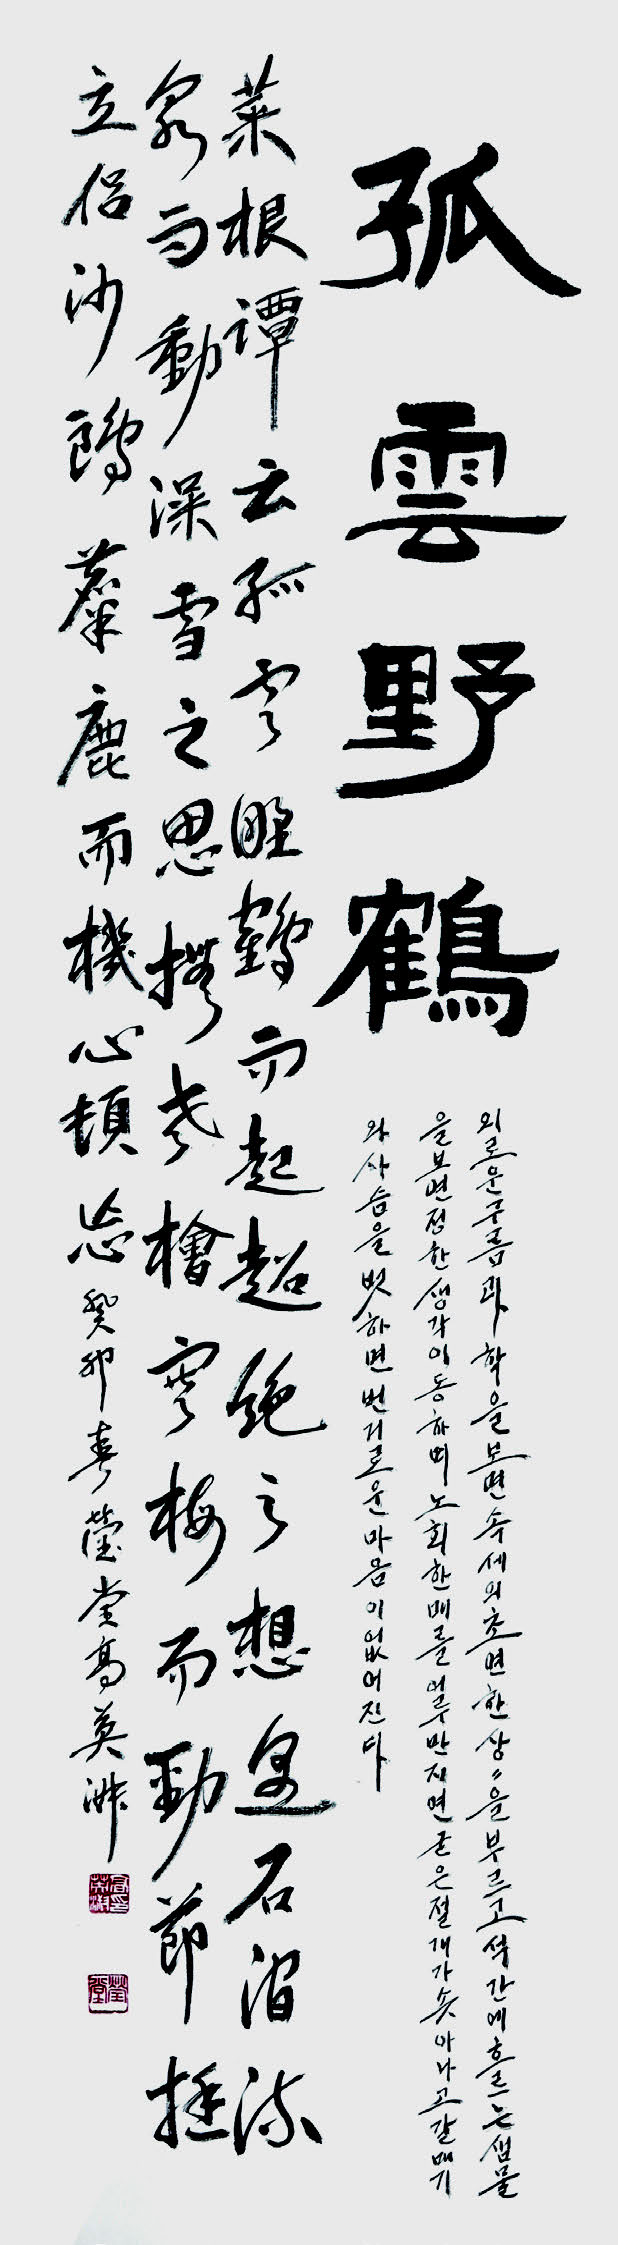 孤雲野鶴
외로운 구름과 학을 보면 속세의 초면한 상〃을 부르고 석간에 흐르는 샘물
을 보면 정한 생각이 동하며 노회한 매를 어루만지면 굳은 절개가 솟아나고 갈매기
와 사슴을 벗하면 번거로운 마음이 없어진다
菜根譚云孤雲野鶴而起超絶之想遇石澗流
泉而動澡雪之思撫老檜寒梅而勁節挺
立侶沙鷗麋鹿而機心頓忘 癸卯春 瑩堂高英淑
瑩堂